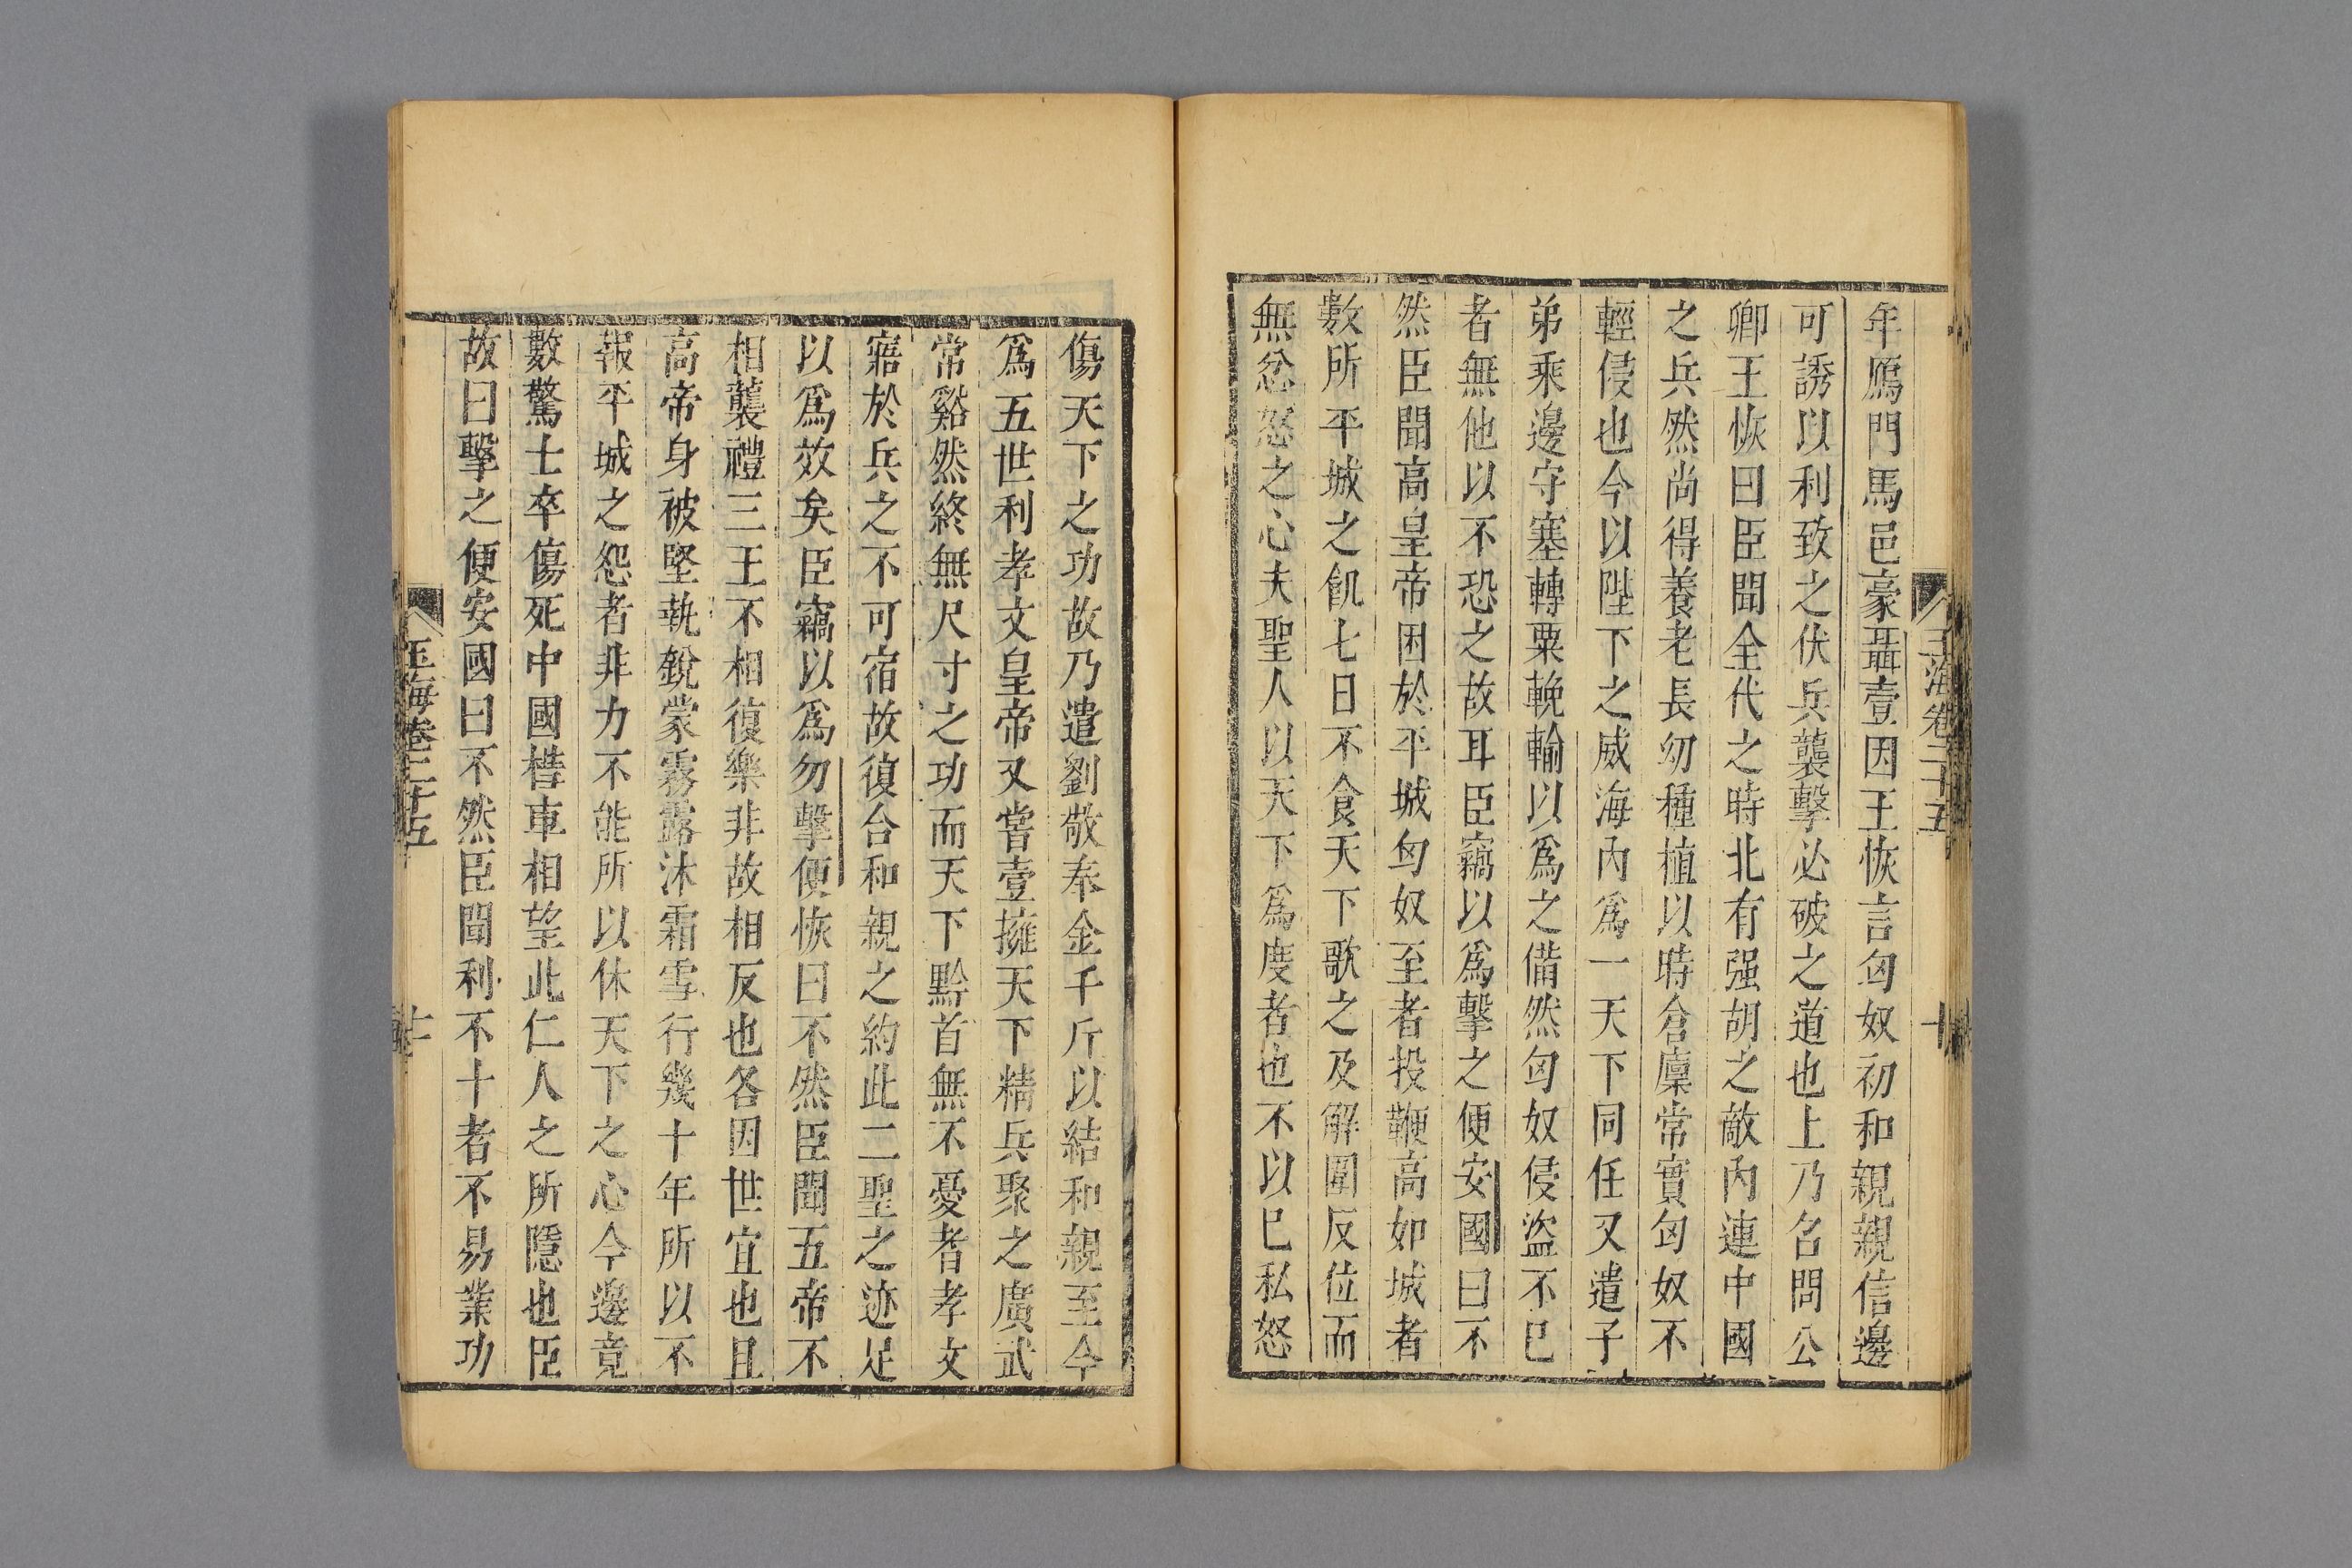 年鴈門馬邑豪聶壹因王恢言匈奴初和親親信邊
可誘以利致之伏兵襲擊必破之道也上乃名問公
卿王恢曰臣聞全代之時北有强胡之敵內連中國
之兵然尚得養老長幼種植以時倉廩常實匈奴不
輕侵也今以陛下之威海內爲一天下同任又遣子
弟乘邊守塞轉粟輓輸以爲之備然匈奴侵盜不已
者無他以不恐之故耳臣竊以爲擊之便安國曰不
然臣聞高皇帝困於平城匈奴至者投鞭高如城者
數所平城之飢七日不食天下歌之及解圍反位而
無忿怒之心夫聖人以天下爲度者也不以已私怒
玉海卷二十五
十
傷天下之功故乃遣劉敬奉金千斤以結和親至今
爲五世利孝文皇帝又嘗壹擁天下精兵聚之廣武
常谿然終無尺寸之功而天下黔首無不憂者孝文
寤於兵之不可宿故復合和親之約此二聖之迹足
以爲效矣臣竊以爲勿擊便恢曰不然臣聞五帝不
相襲禮三王不相復樂非故相反也各因世宜也且
高帝身被堅執銳蒙霧露沐霜雪行幾十年所以不
報平城之怨者非力不能所以休天下之心今邊竟
數驚士卒傷死中國槥車相望此仁人之所隱也臣
故曰擊之便安國曰不然臣聞利不十者不易業功
玉海卷二十五
十一